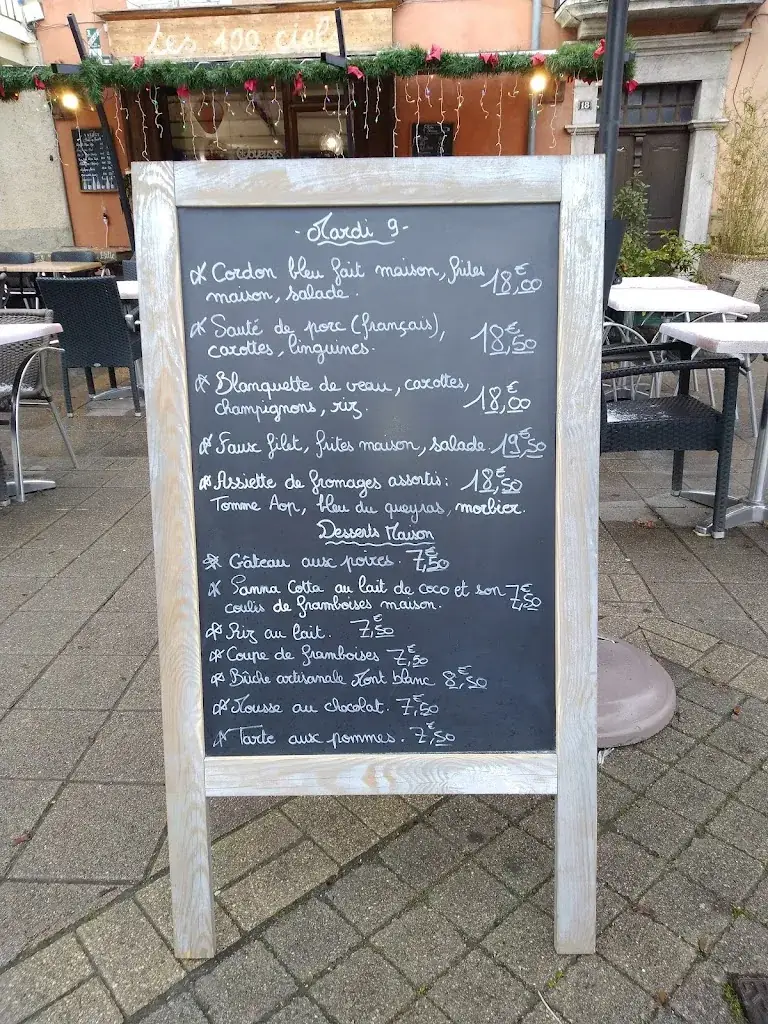 Les 100 ciel
18
- Mardi 9 -
Cordon bleu fait maison, frites 18,00€
maison, salade.
Sauté de porc (français), 18,50€
carottes, linguines.
Blanquette de veau, carottes, 18,00€
champignons, riz.
Faux filet, frites maison, salade. 19,50€
Assiette de fromages assortis: 18,50€
Tomme Aop, bleu du queyras, morbier.
Desserts Maison
Gâteau aux poires. 7,50€
Panna Cotta au lait de coco et son 7,50€
coulis de framboises maison.
Riz au lait. 7,50€
Coupe de framboises 7,50€
Bûche artisanale Mont blanc 8,50€
Mousse au chocolat. 7,50€
Tarte aux pommes. 7,50€